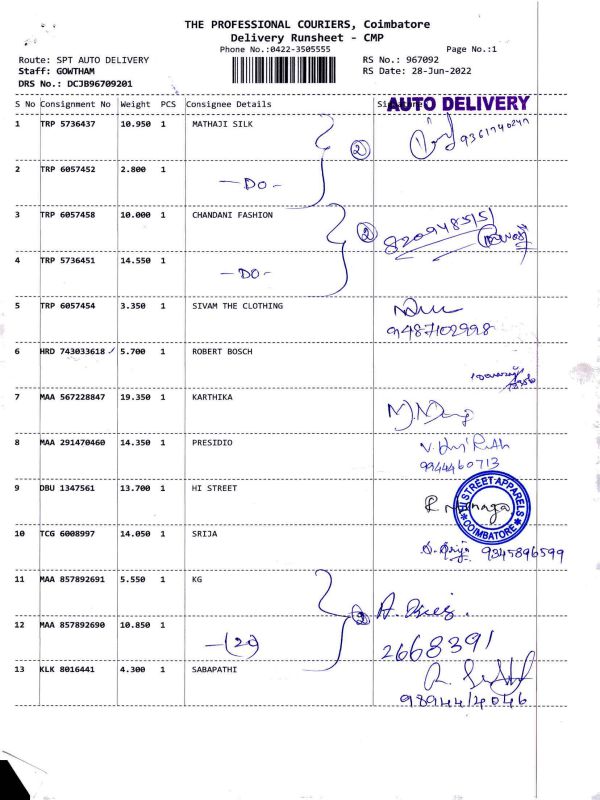 THE PROFESSIONAL COURIERS, Coimbatore
Delivery Runsheet - CMP
Phone No.:0422-3505555
Page No.:1
Route: SPT AUTO DELIVERY
RS No.: 967092
Staff: GOWTHAM
RS Date: 28-Jun-2022
DRS No.: DCJB96709201
S No Consignment No Weight PCS Consignee Details
AUTO DELIVERY
1 TRP 5736437 10.950 1 MATHAJI SILK
2
2 TRP 6057452 2.800 1
-DO-
3 TRP 6057458 10.000 1 CHANDANI FASHION
2
4 TRP 5736451 14.550 1
-DO-
5 TRP 6057454 3.350 1 SIVAM THE CLOTHING
9487102998
6 HRD 743033618 ✓ 5.700 1 ROBERT BOSCH
7 MAA 567228847 19.350 1 KARTHIKA
8 MAA 291470460 14.350 1 PRESIDIO
9944460713
9 DBU 1347561 13.700 1 HI STREET
HI STREET APPARELS
* COIMBATORE *
10 TCG 6008997 14.050 1 SRIJA
9345896599
11 MAA 857892691 5.550 1 KG
12 MAA 857892690 10.850 1
2668391
13 KLK 8016441 4.300 1 SABAPATHI